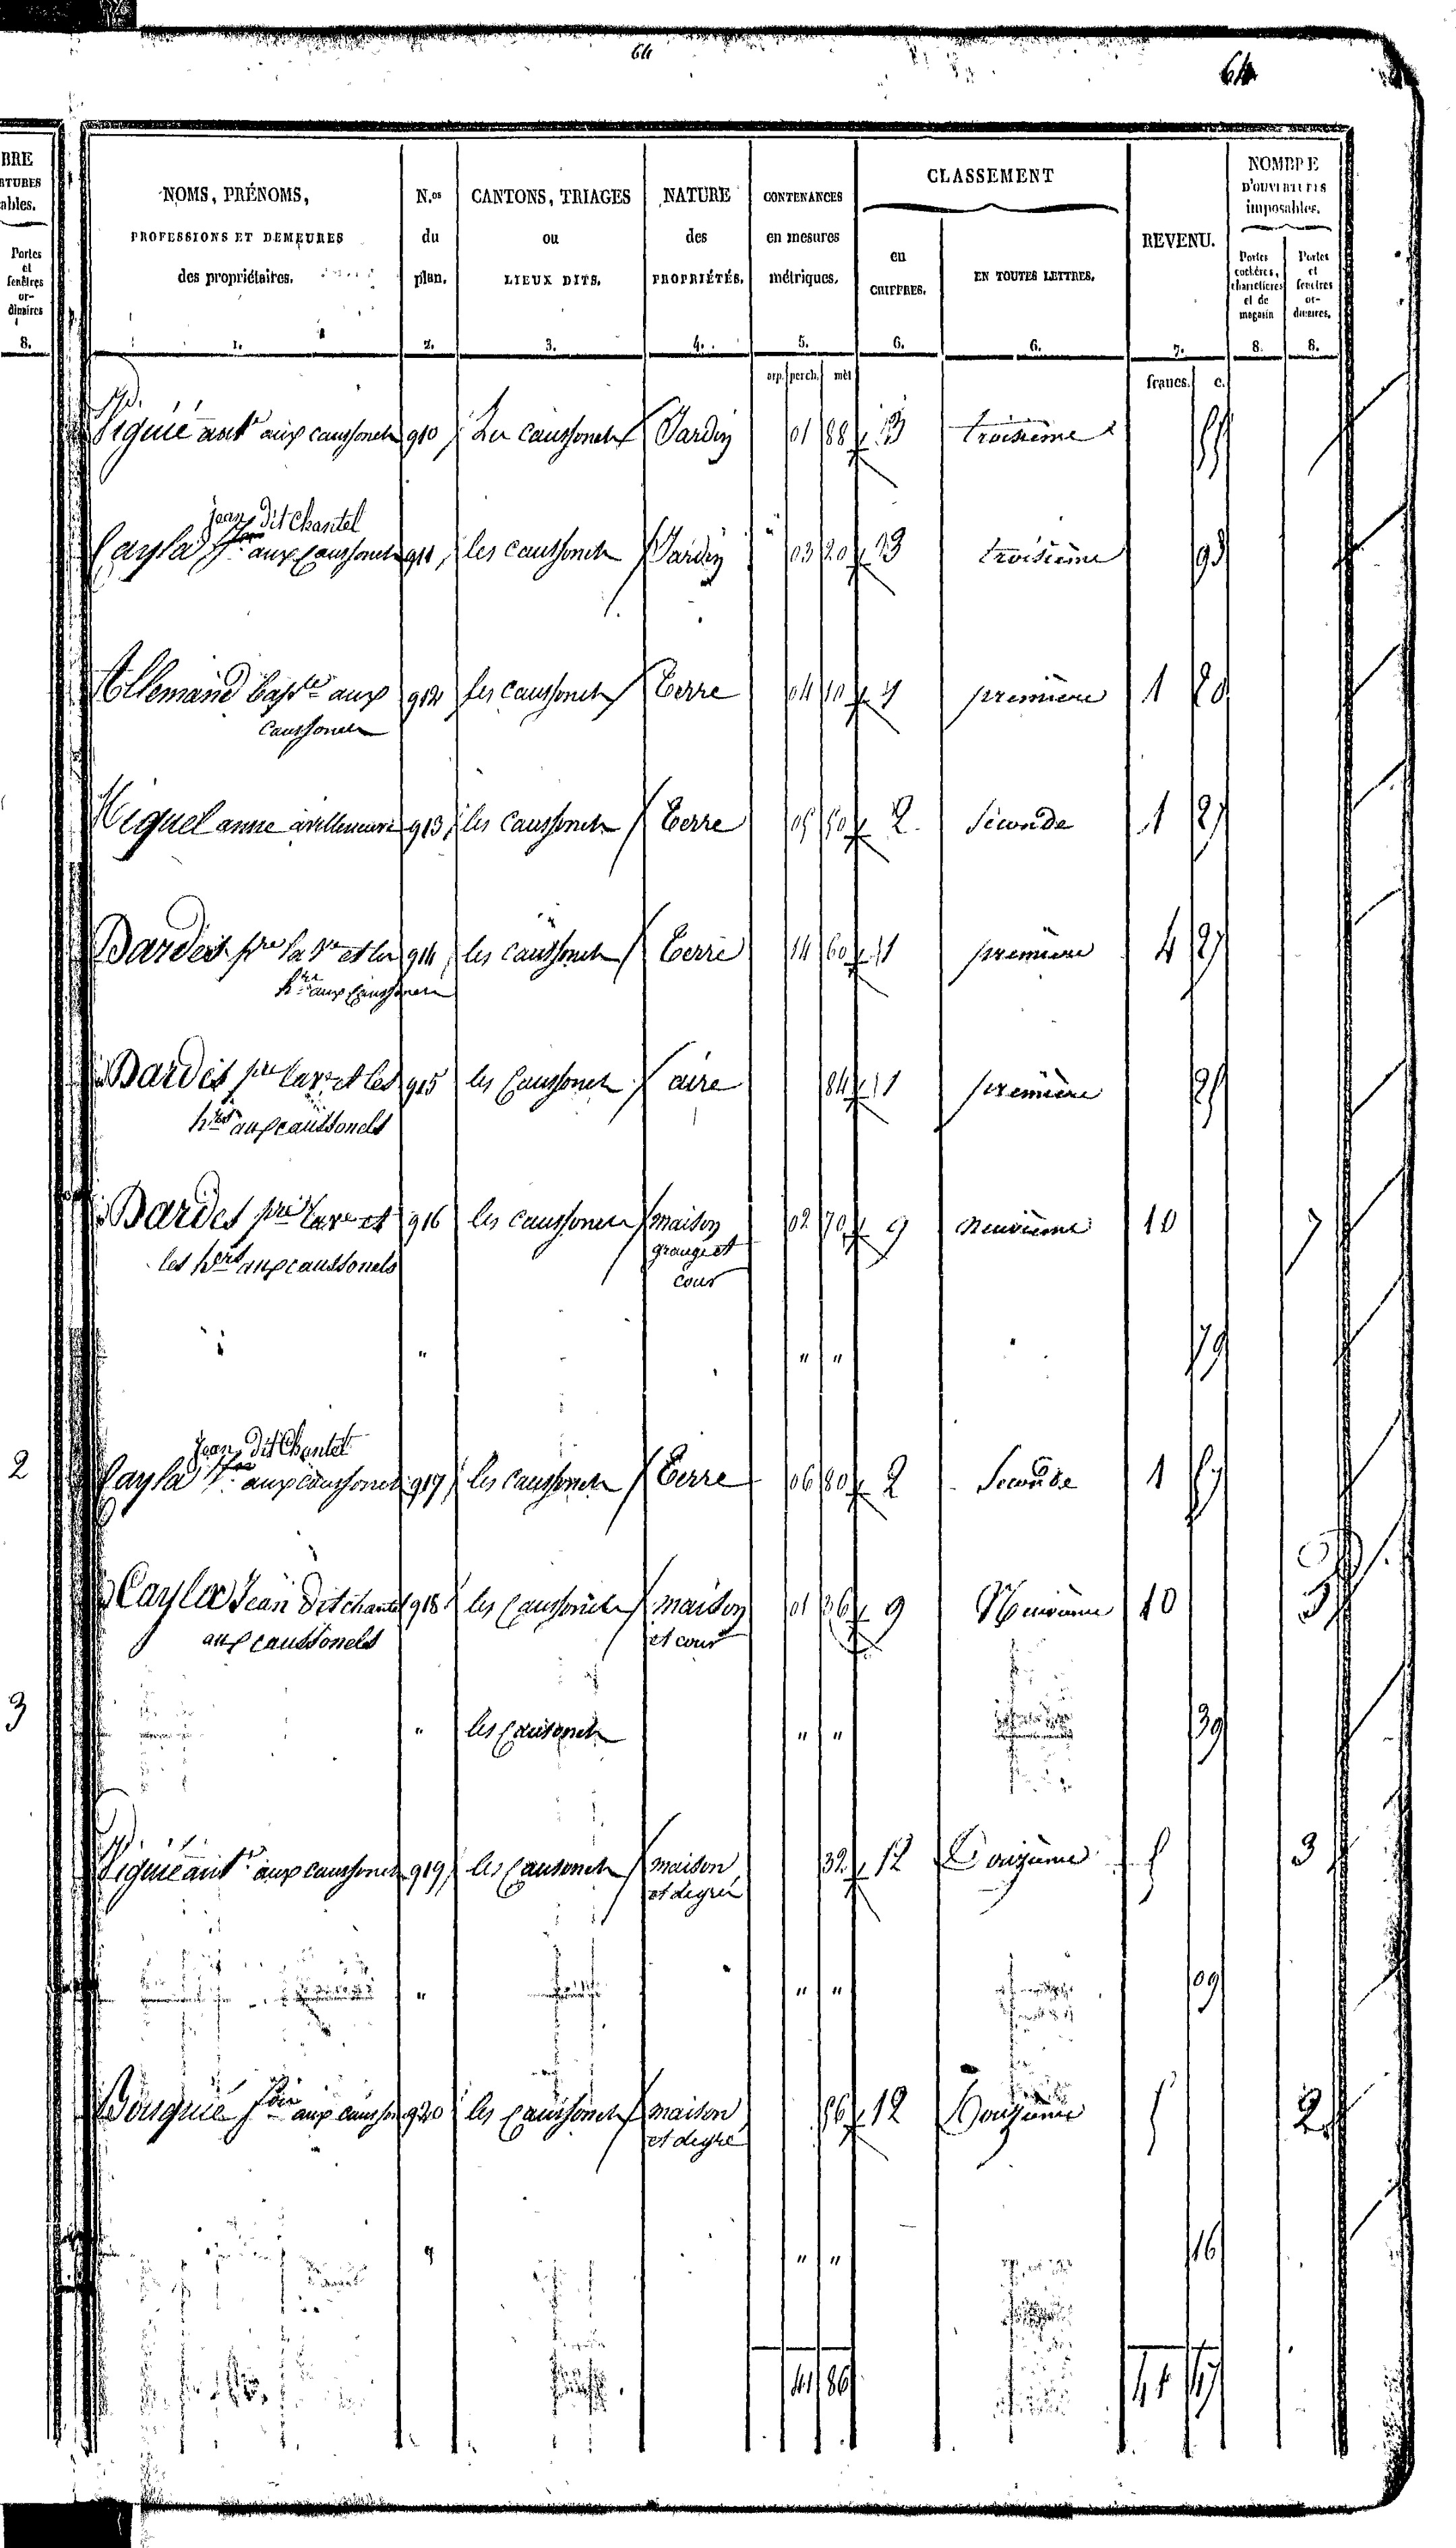 64
64
BRE
ables.
Portes
et
fenêtres
or-
dinaires
8.
2
3
NOMS, PRÉNOMS,
PROFESSIONS ET DEMEURES
des propriétaires.
1.
N.os
du
plan.
2.
CANTONS, TRIAGES
ou
LIEUX DITS.
3.
NATURE
des
PROPRIÉTÉS.
4.
CONTENANCES
en mesures
métriques.
5.
CLASSEMENT
en
CHIFFRES.
6.
EN TOUTES LETTRES.
6.
REVENU.
7.
NOMBRE
D'OUVERTURES
imposables.
Portes
cochères,
charretières
et de
magasin
8.
Portes
et
fenêtres
or-
dinaires.
8.
arp. perch. mèt francs. c.
aux caussonels 910 Les caussonels Jardin 01 88 3 troisième 55
jean dit Chantel
Cayla aux Caussonels 911 les caussonels Jardin 03 20 3 troisième 93
Allemand Bapte aux 912 les caussonels Terre 04 10 1 première 1 20
Caussonels
Miquel anne à villeneuve 913 les caussonels Terre 05 50 2 seconde 1 27
Bardes pre la ve et les 914 les caussonels Terre 14 60 1 première 4 27
hrs aux Caussonels
Bardes pre la ve et les 915 les Caussonels aire 84 1 première 25
hrs aux caussonels
Bardes pre la ve et 916 les caussonels maison 02 70 9 neuvième 10 7
les hers aux caussonels grange et
cour
" " " 79
Jean dit Chantel
Cayla aux caussonels 917 les caussonels Terre 06 80 2 Seconde 1 57
Cayla Jean dit chantel 918 les Caussonels maison 01 36 9 Neuvième 10 3
aux caussonels et cour
" les Caussonels " " 39
aux caussonels 919 les Caussonels maison 32 12 Douzième 5 3
et degré
" " " 09
Bousquié aux causson 920 les caussonels maison 56 12 Douzième 5 2
et degré
" " " 16
41 86 41 47